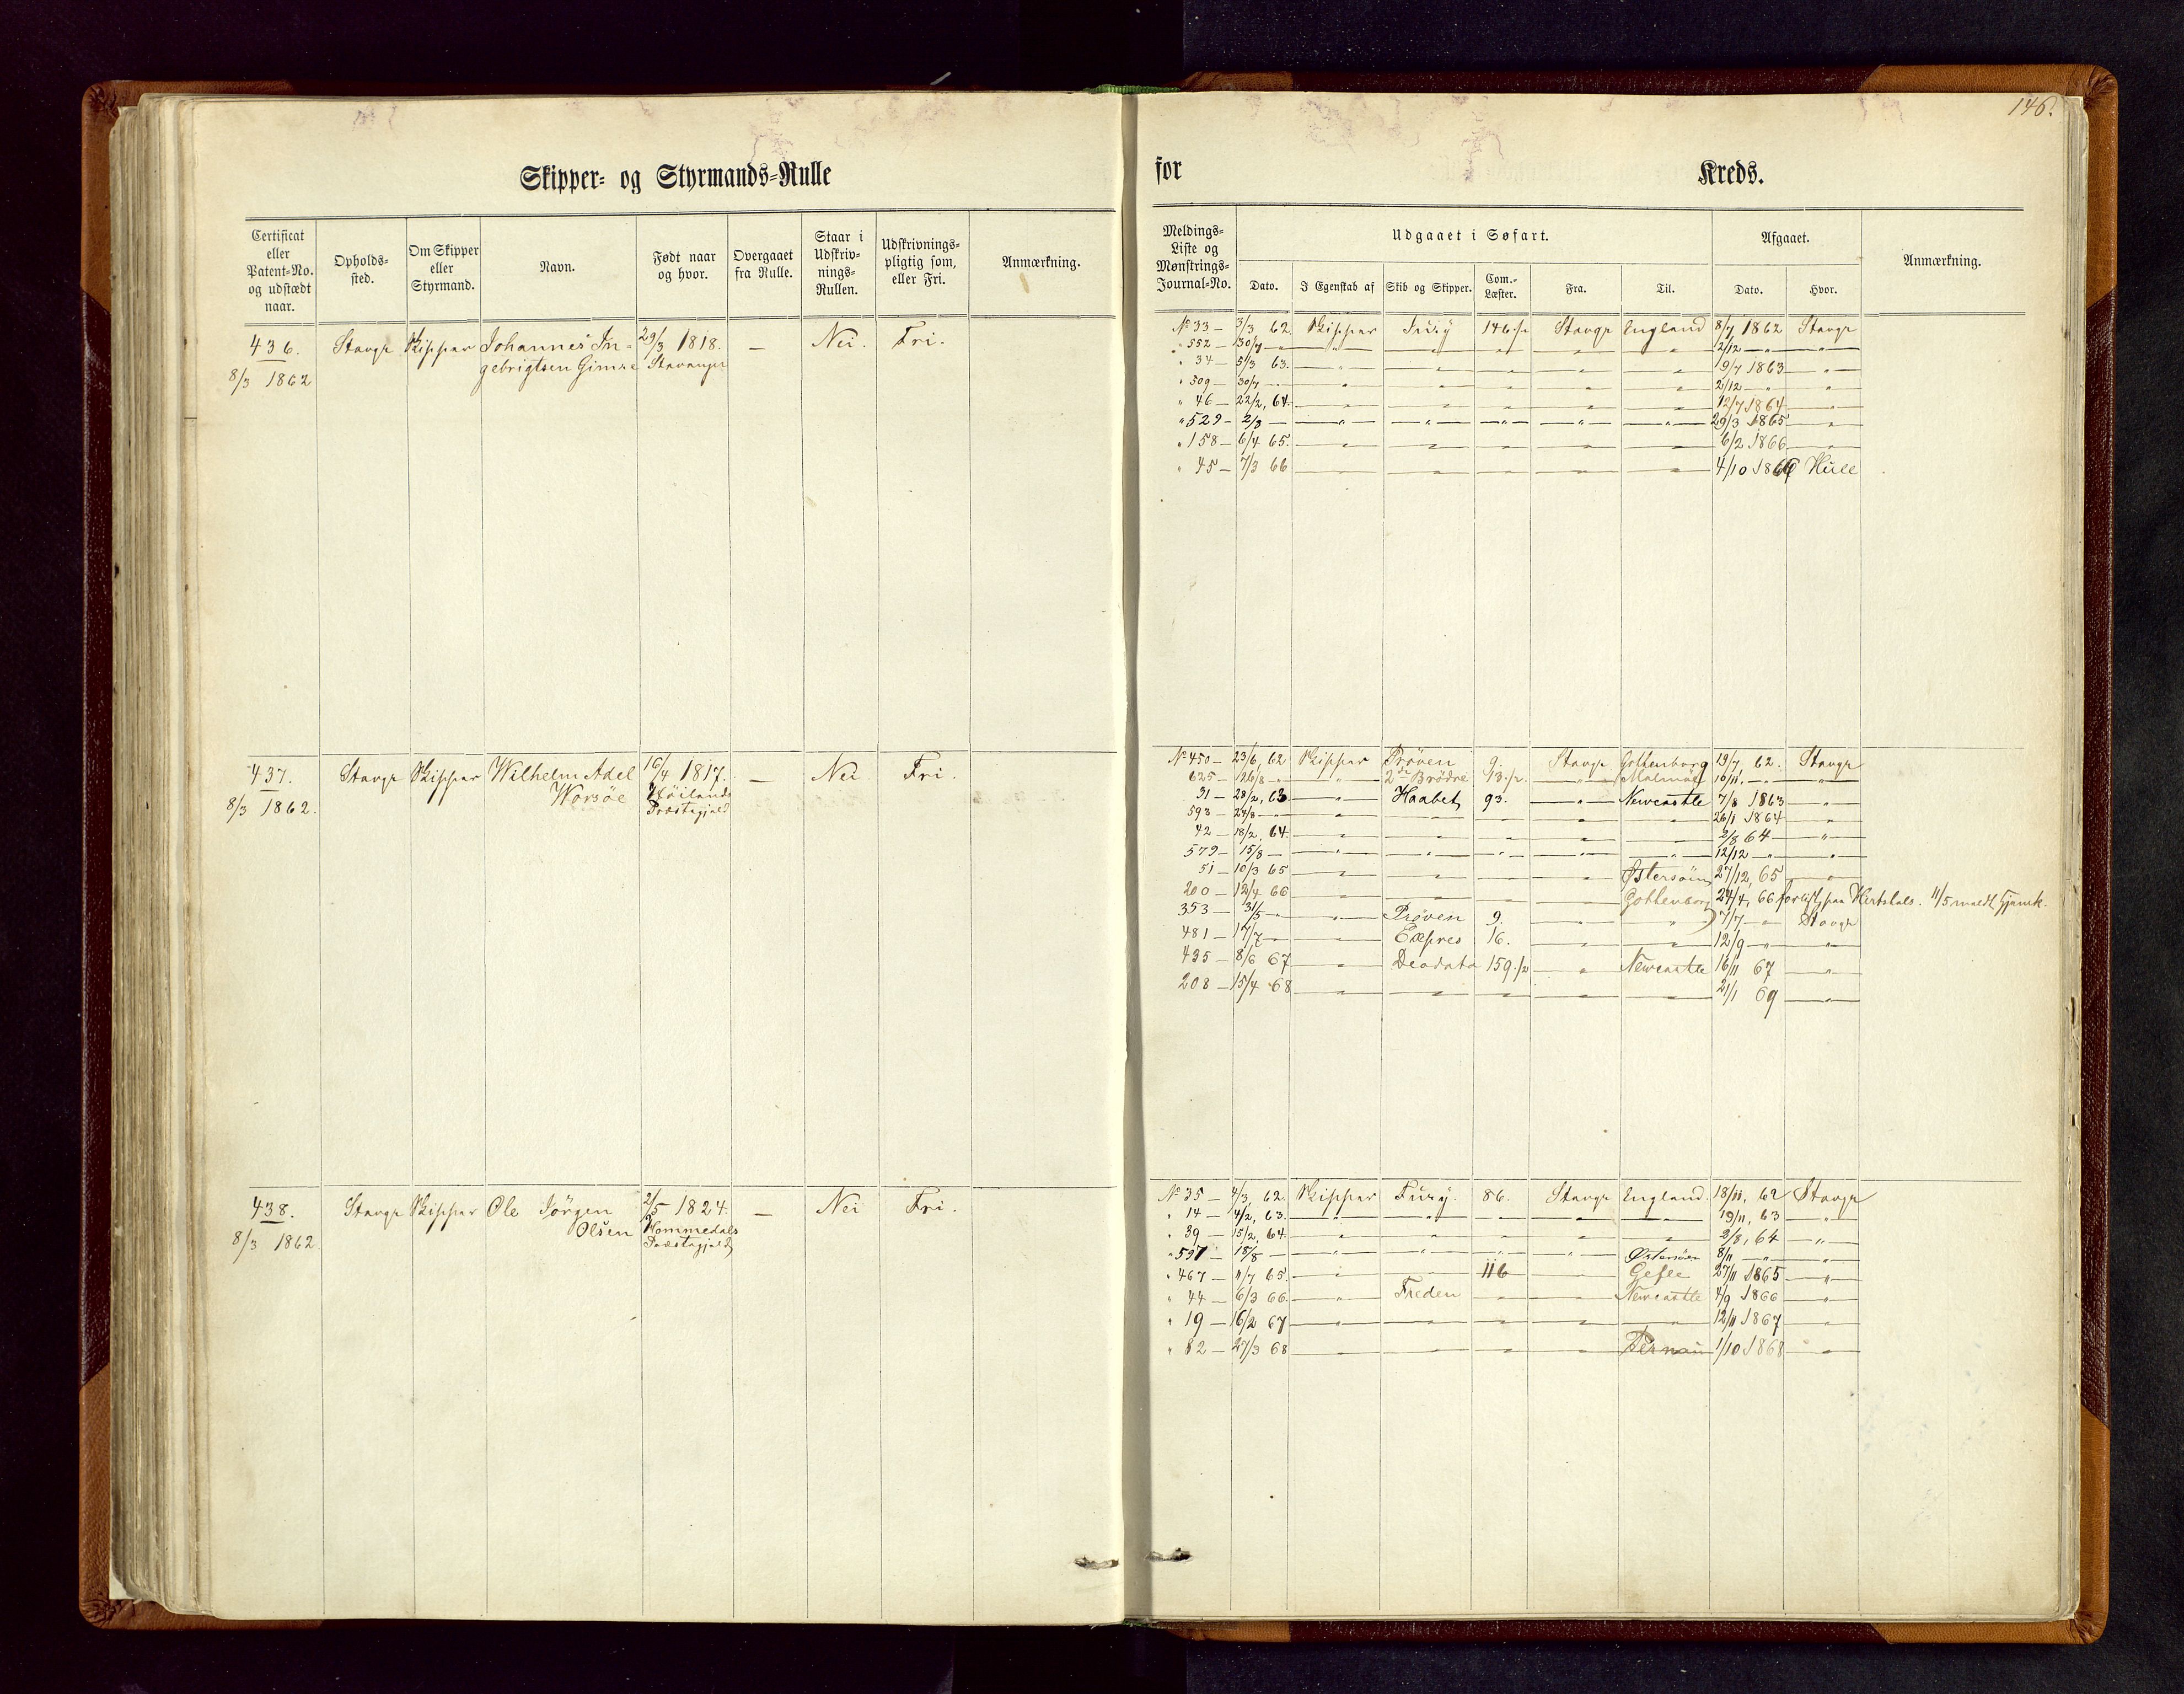 Skipper- og Styrmands-Rulle
Certificat eller Patent-No. og udstædt naar.
Opholds-sted.
Om Skipper eller Styrmand.
Navn.
Født naar og hvor.
Overgaaet fra Rulle.
Staar i Udskriv-nings-Rullen.
Udskrivnings-pligtig som, eller Fri.
Anmærkning.
436. Stavgr Skipper Johannes In- 29/3 1818. — Nei. Fri.
8/3 1862 gebrigtsen Gimre Stavanger
437. Stavgr Skipper Wilhelm Adel 16/4 1817. — Nei. Fri.
8/3 1862. Worsöe Höilands
Præstegjeld
438. Stavgr Skipper Ole Jörgen 2/5 1824. — Nei Fri.
8/3 1862. Olsen Hommedals
Præstegjeld
146.
for Kreds.
Meldings-Liste og Mønstrings-Journal-No.
Udgaaet i Søfart.
Afgaaet.
Anmærkning.
Dato. I Egenskab af Skib og Skipper. Com.-Læster. Fra. Til. Dato. Hvor.
No 33 — 3/3 62. Skipper Fury 146 1/2 Stavgr England 8/7 1862 Stavgr
" 552 — 30/7 — " — " — " — " — " — 2/12 — " — "
" 34 — 5/3 63. — " — " — " — " — " — 19/7 1863 — "
" 509 — 30/7 — " — " — " — " — " — 2/12 — " — "
" 46 — 22/2, 64. — " — " — " — " — " — 12/7 1864 — "
" 529 — 2/8 — " — " — " — " — " — 29/3 1865 — "
" 158 — 6/4 65. — " — " — " — " — " — 6/2 1866 — "
" 45 — 7/3 66 — " — " — " — " — " — 4/10 1866 Hull
No 450 — 23/6, 62 Skipper Pröven 9. Stavgr Gottenborg 19/7 62. Stavgr
625 — 26/8 — " — " 2de Brödre 13 1/2 — " — Malmöe 16/11. — " — "
31 — 28/2, 63 — " — Haabet 93. — " — Newcastle 7/8 1863 — "
593 — 24/8 — " — " — " — " — " — 26/1 1864 — "
42 — 18/2, 64. — " — " — " — " — " — 2/8 64 — "
579 — 15/8 — " — " — " — " — " — 12/12 — " — "
51 — 10/3 65 — " — " — " — " — Östersöen 27/12, 65 — "
200 — 12/4 66 — " — " — " — " — Gottenborg 24/4, 66 forliist paa Hertshals. 11/5 meldt hjemk.
353 — 31/5 — " — " — Pröven 9. — " — " — 7/7 — " Stavgr
481 — 17/7 — " — Expres 16. — " — " — 12/9 — " — "
435 — 8/6 67 — " — Deodata 159 1/2 — " — Newcastle 16/11 67 — "
208 — 15/4 68 — " — " — " — " — " — 21/1 69 — "
No 35 — 4/3, 62. Skipper Fury. 86. Stavgr England. 18/11, 62 Stavgr
" 14 — 4/2, 63. — " — " — " — " — " — 19/11, 63 — "
" 39 — 15/2, 64. — " — " — " — " — " — 2/8, 64 — "
" 597 — 18/8 — " — " — " — " — Östersöen 8/11 — " — "
" 467 — 11/7 65. — " — " — 116 — " — Gefle 27/11 1865 — "
" 44 — 6/3 66. — " — Freden — " — " — Newcastle 4/9 1866 — "
" 19 — 16/2 67 — " — " — " — " — " — 12/11 1867 — "
" 82 — 27/3 68 — " — " — " — " — Pernau 1/10 1868 — "